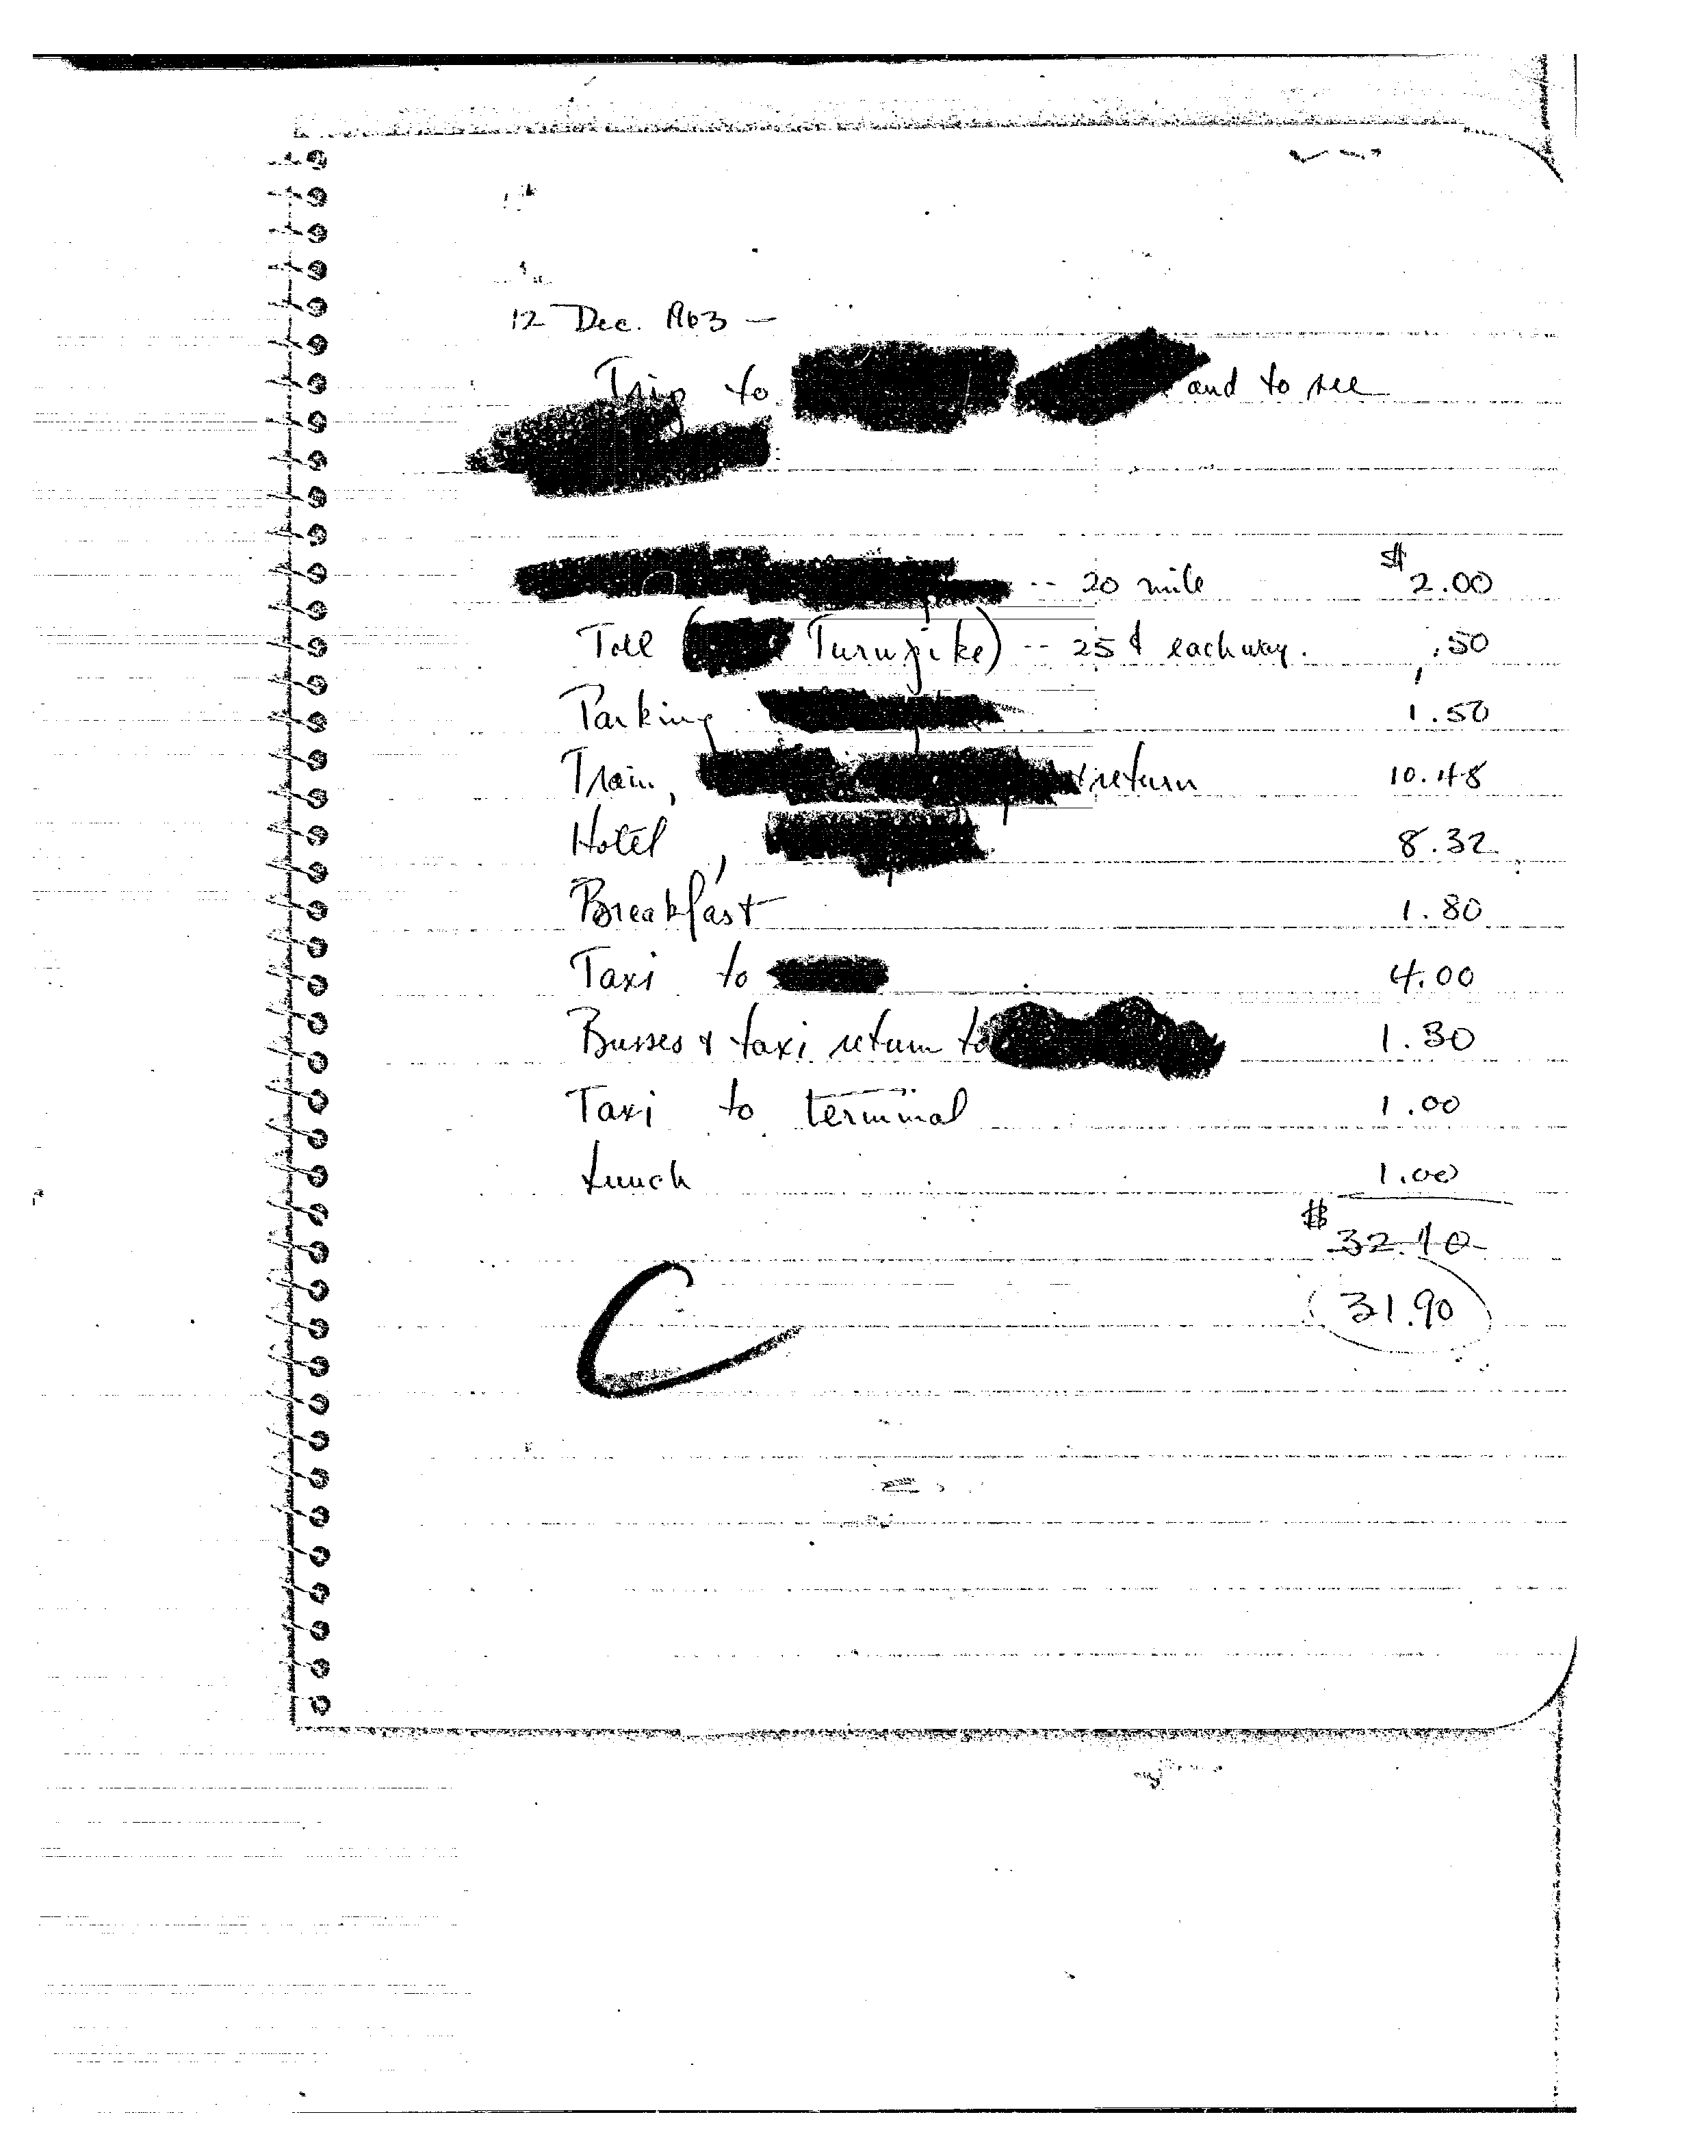 12 Dec. 1963 —
Trip to and to see
-- 20 mile $2.00
Toll ( Turnpike) -- 25¢ each way. .50
Parking 1.50
Train, + return 10.48
Hotel, 8.32
Breakfast 1.80
Taxi to 4.00
Busses & taxi return to 1.30
Taxi to terminal 1.00
Lunch 1.00
$32.10
31.90
C